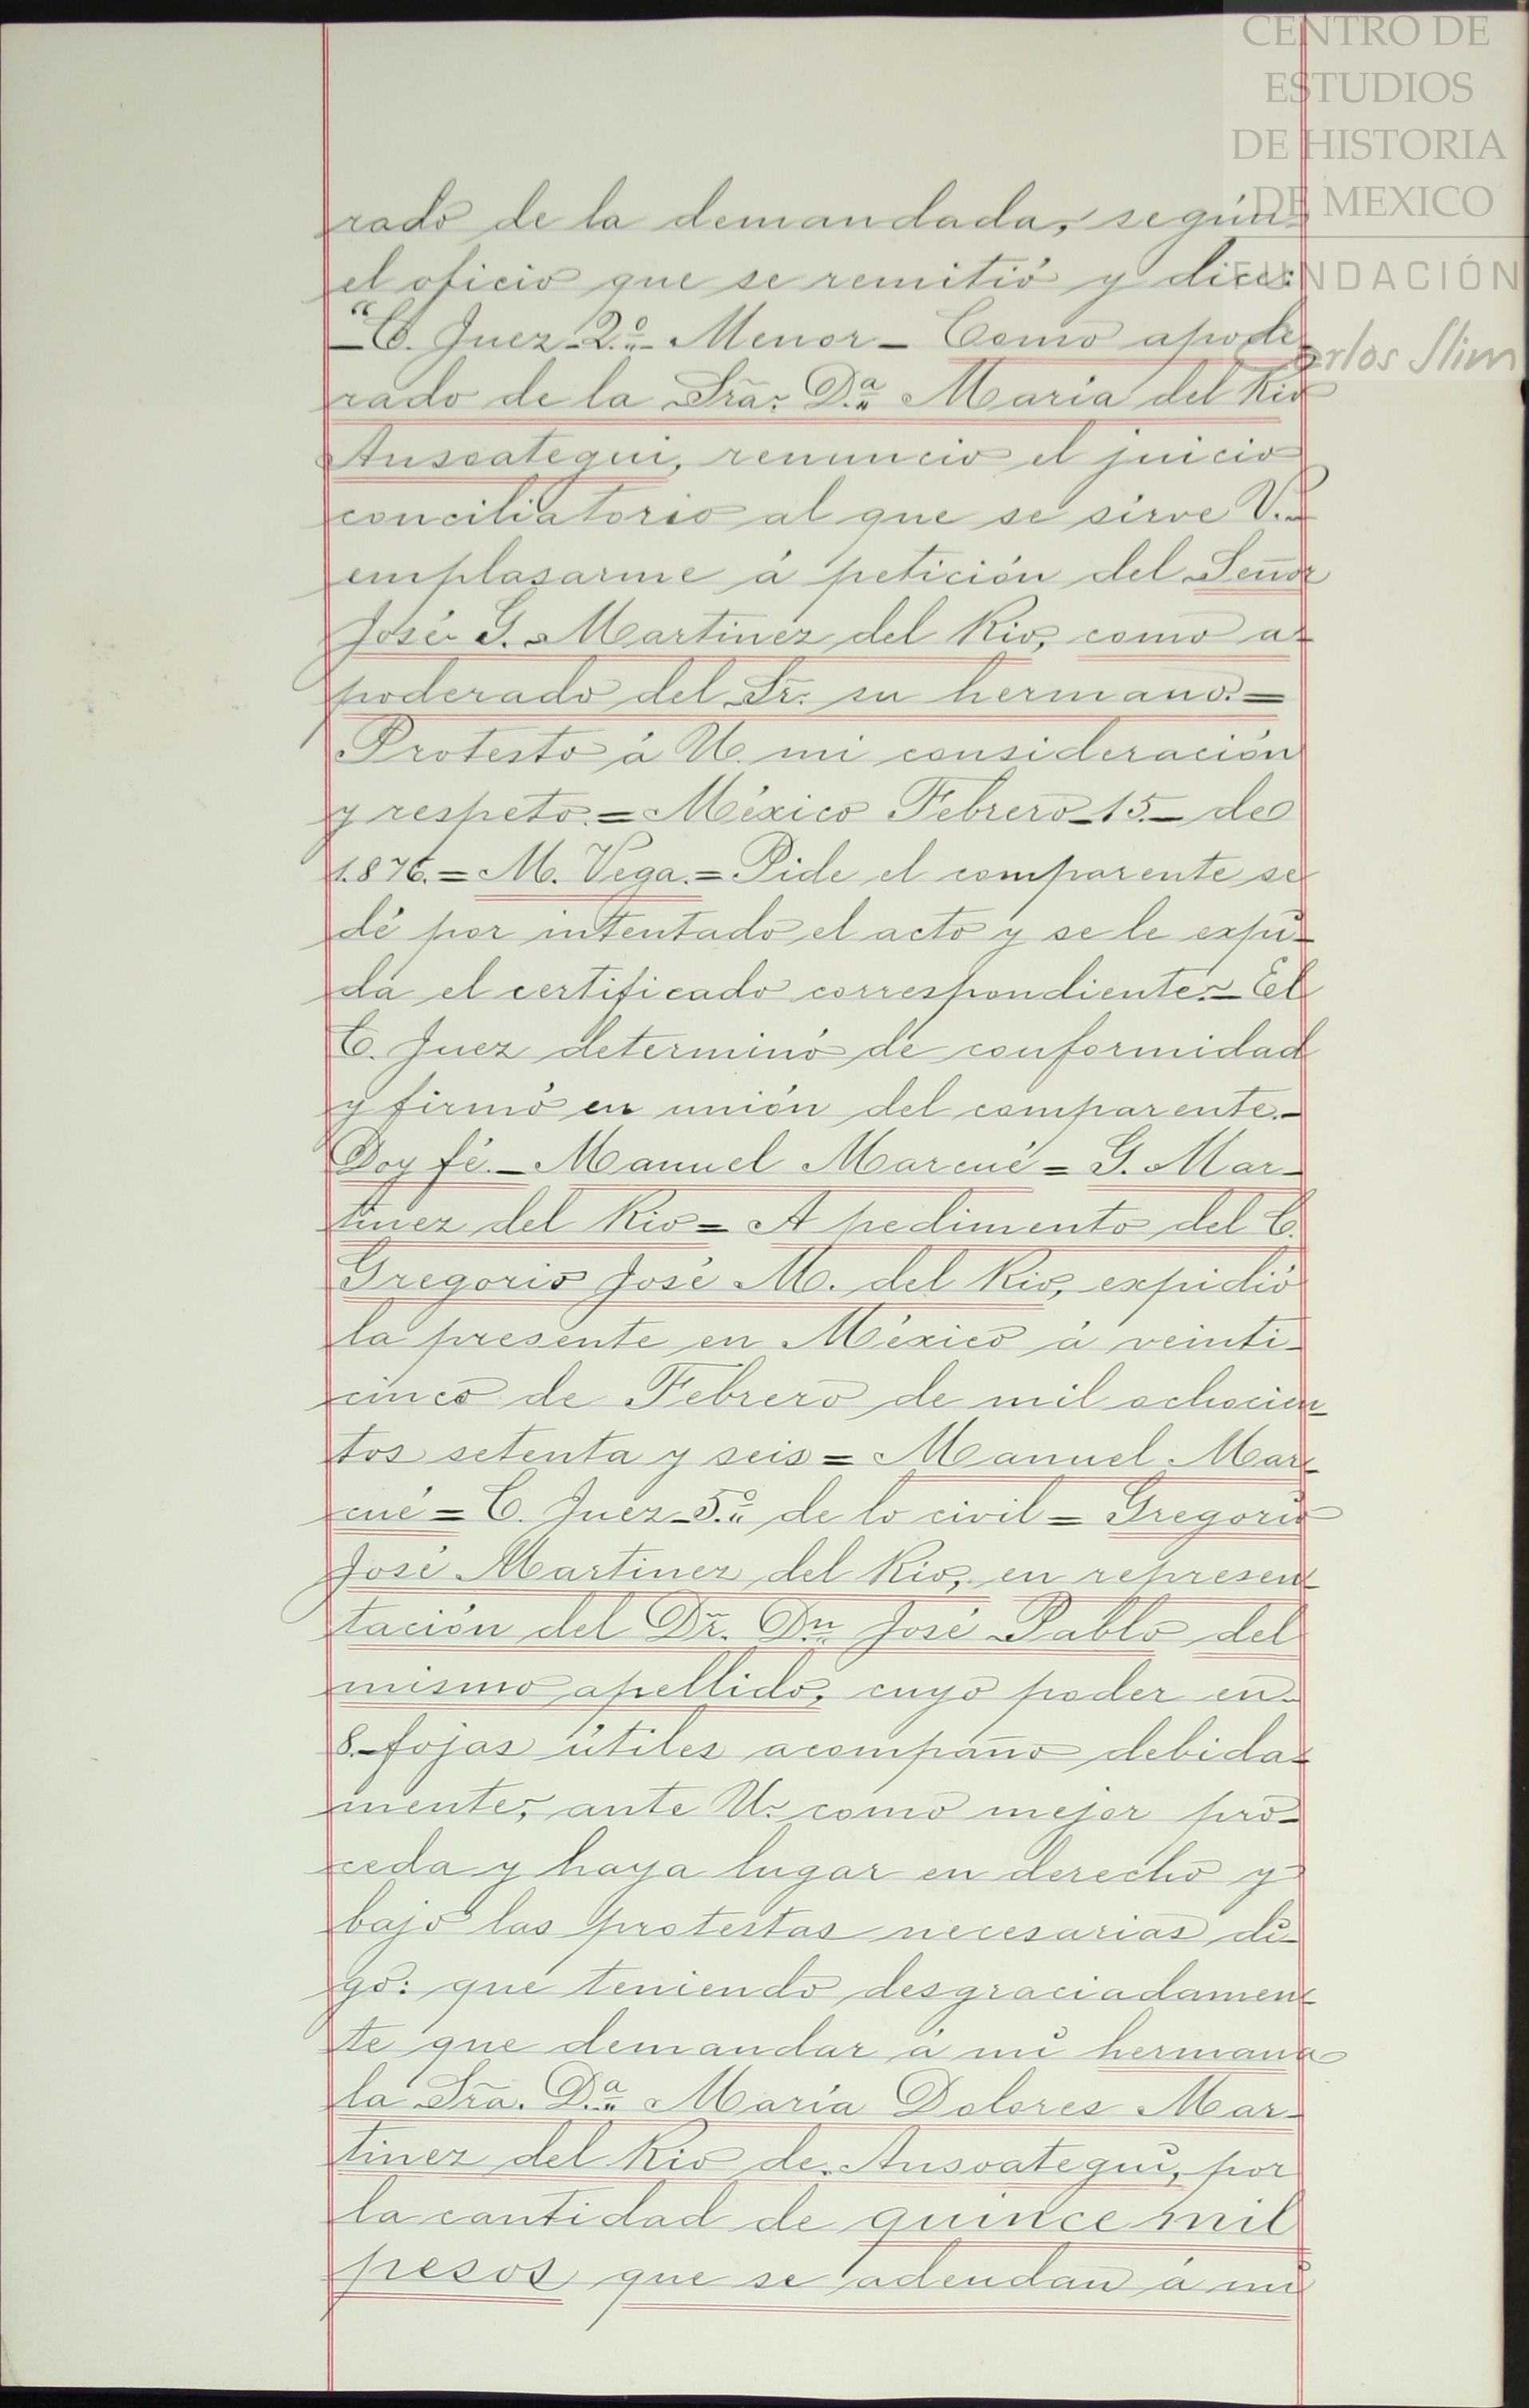 CENTRO DE
ESTUDIOS
DE HISTORIA
DE MEXICO
FUNDACIÓN
Carlos Slim
rado de la demandada, según
el oficio que se remitió y dice:
"C. Juez 2.º Menor - Como apode
rado de la Sra. D.ª María del Rio
Ansoategui, renuncio el juicio
conciliatorio al que se sirve V.
emplasarme á petición del Señor
José G. Martinez del Rio, como a-
poderado del Sr. su hermano. =
Protesto á U. mi consideración
y respeto. = México Febrero 15. - de
1.876. = M. Vega. = Pide el comparente se
dé por intentado el acto y se le expi-
da el certificado correspondiente. - El
C. Juez determinó de conformidad
y firmó en unión del comparente. -
Doy fé. - Manuel Marcué = G. Mar-
tinez del Rio = A pedimento del C.
Gregorio José M. del Rio, expidió
la presente en México á veinti-
cinco de Febrero de mil ochocien-
tos setenta y seis = Manuel Mar-
cué = C. Juez 5.º de lo civil = Gregorio
José Martinez del Rio, en represen-
tación del Dr. Dn. José Pablo del
mismo apellido, cuyo poder en
8. fojas útiles acompaño debida-
mente, ante U. como mejor pro-
ceda y haya lugar en derecho y
bajo las protestas necesarias di-
go: que teniendo desgraciadamen-
te que demandar á mi hermana
la Sra. D.ª María Dolores Mar-
tinez del Rio de Ansoategui, por
la cantidad de quince mil
pesos que se adeudan á mi